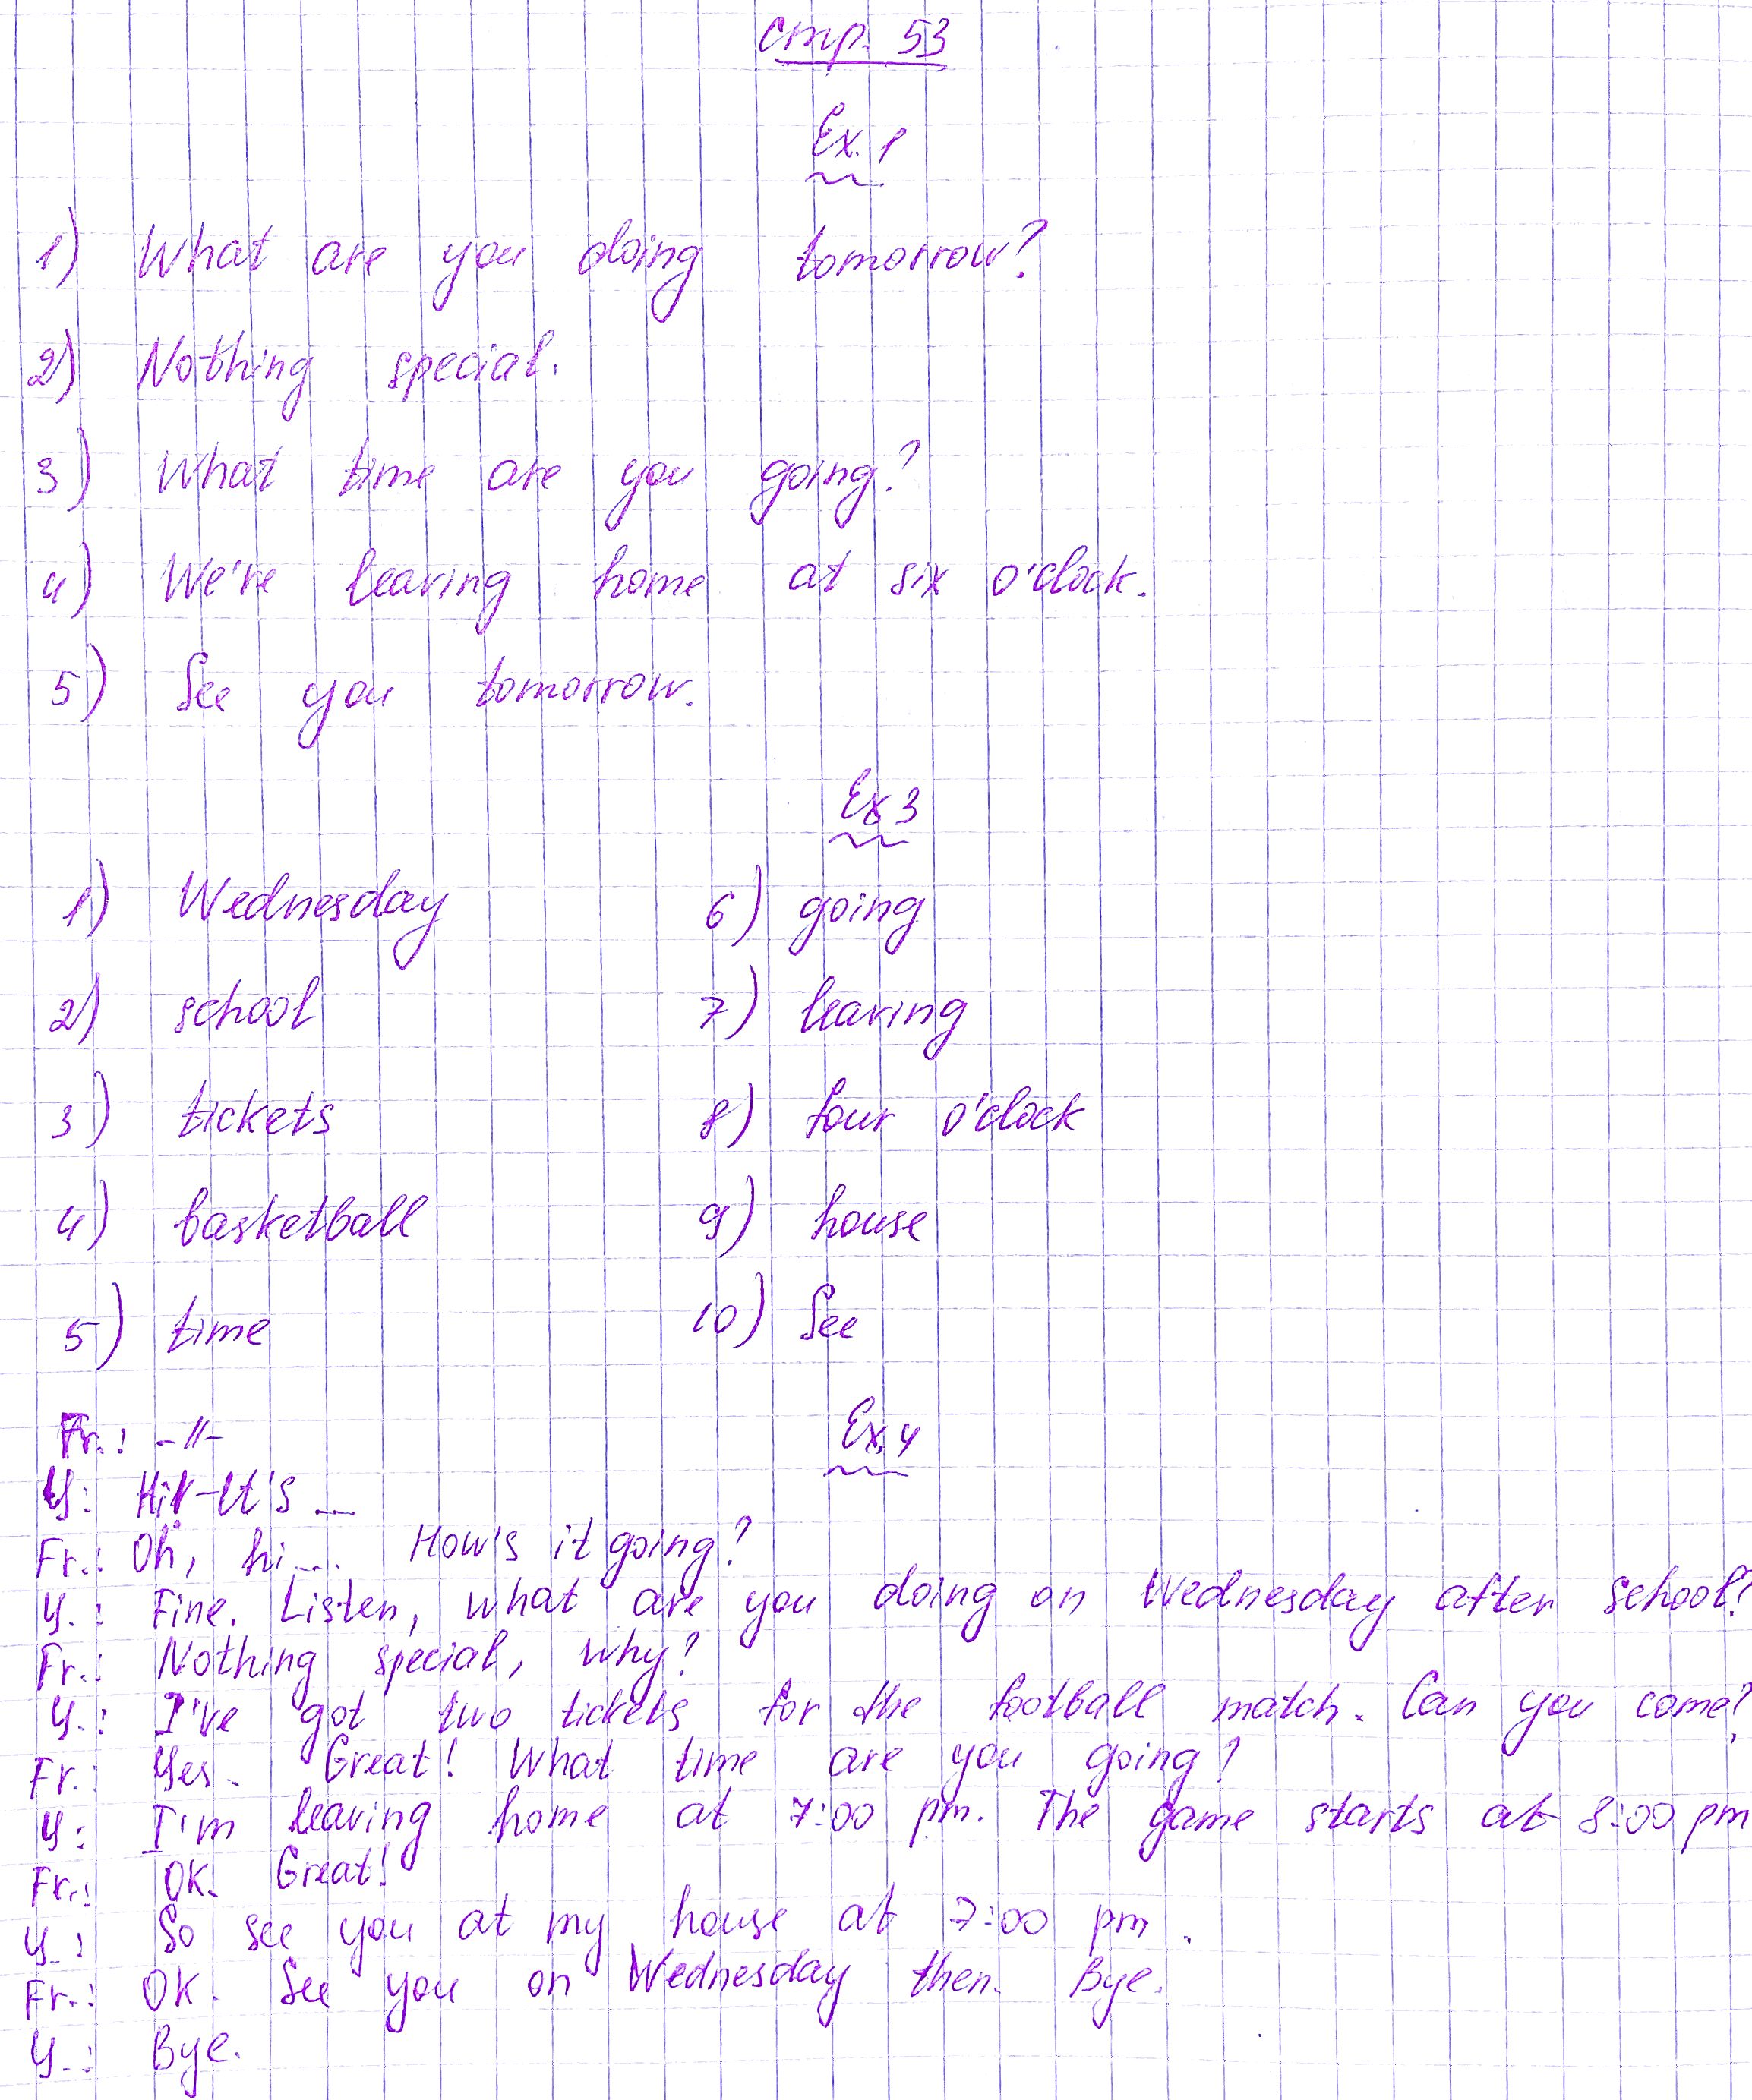 стр. 53
Ex. 1
1) What are you doing tomorrow?
2) Nothing special.
3) What time are you going?
4) We're leaving home at six o'clock.
5) See you tomorrow.
Ex 3
1) Wednesday 6) going
2) school 7) leaving
3) tickets 8) four o'clock
4) basketball 9) house
5) time 10) See
Ex. 4
Fr.: -//-
Y: Hi! It's ...
Fr.: Oh, hi.... How's it going?
Y.: Fine. Listen, what are you doing on Wednesday after school?
Fr.: Nothing special, why?
Y.: I've got two tickets for the football match. Can you come?
Fr.: Yes. Great! What time are you going?
Y.: I'm leaving home at 7:00 pm. The game starts at 8:00 pm
Fr.: OK. Great!
Y.: So see you at my house at 7:00 pm.
Fr.: OK. See you on Wednesday then. Bye.
Y.: Bye.